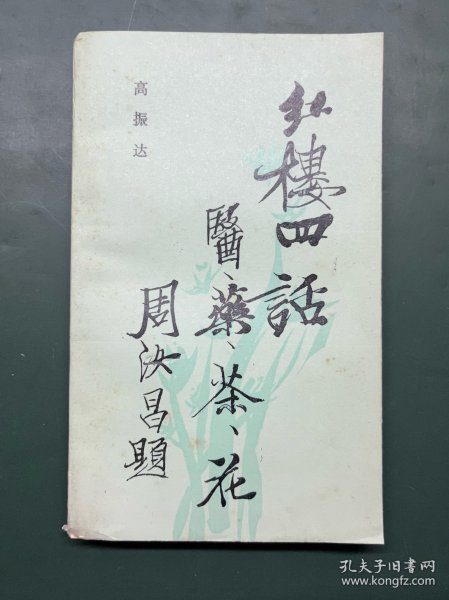 红樓四話
醫、藥、茶、花
周汝昌題
高振达
孔夫子旧书网
www.kongfz.com